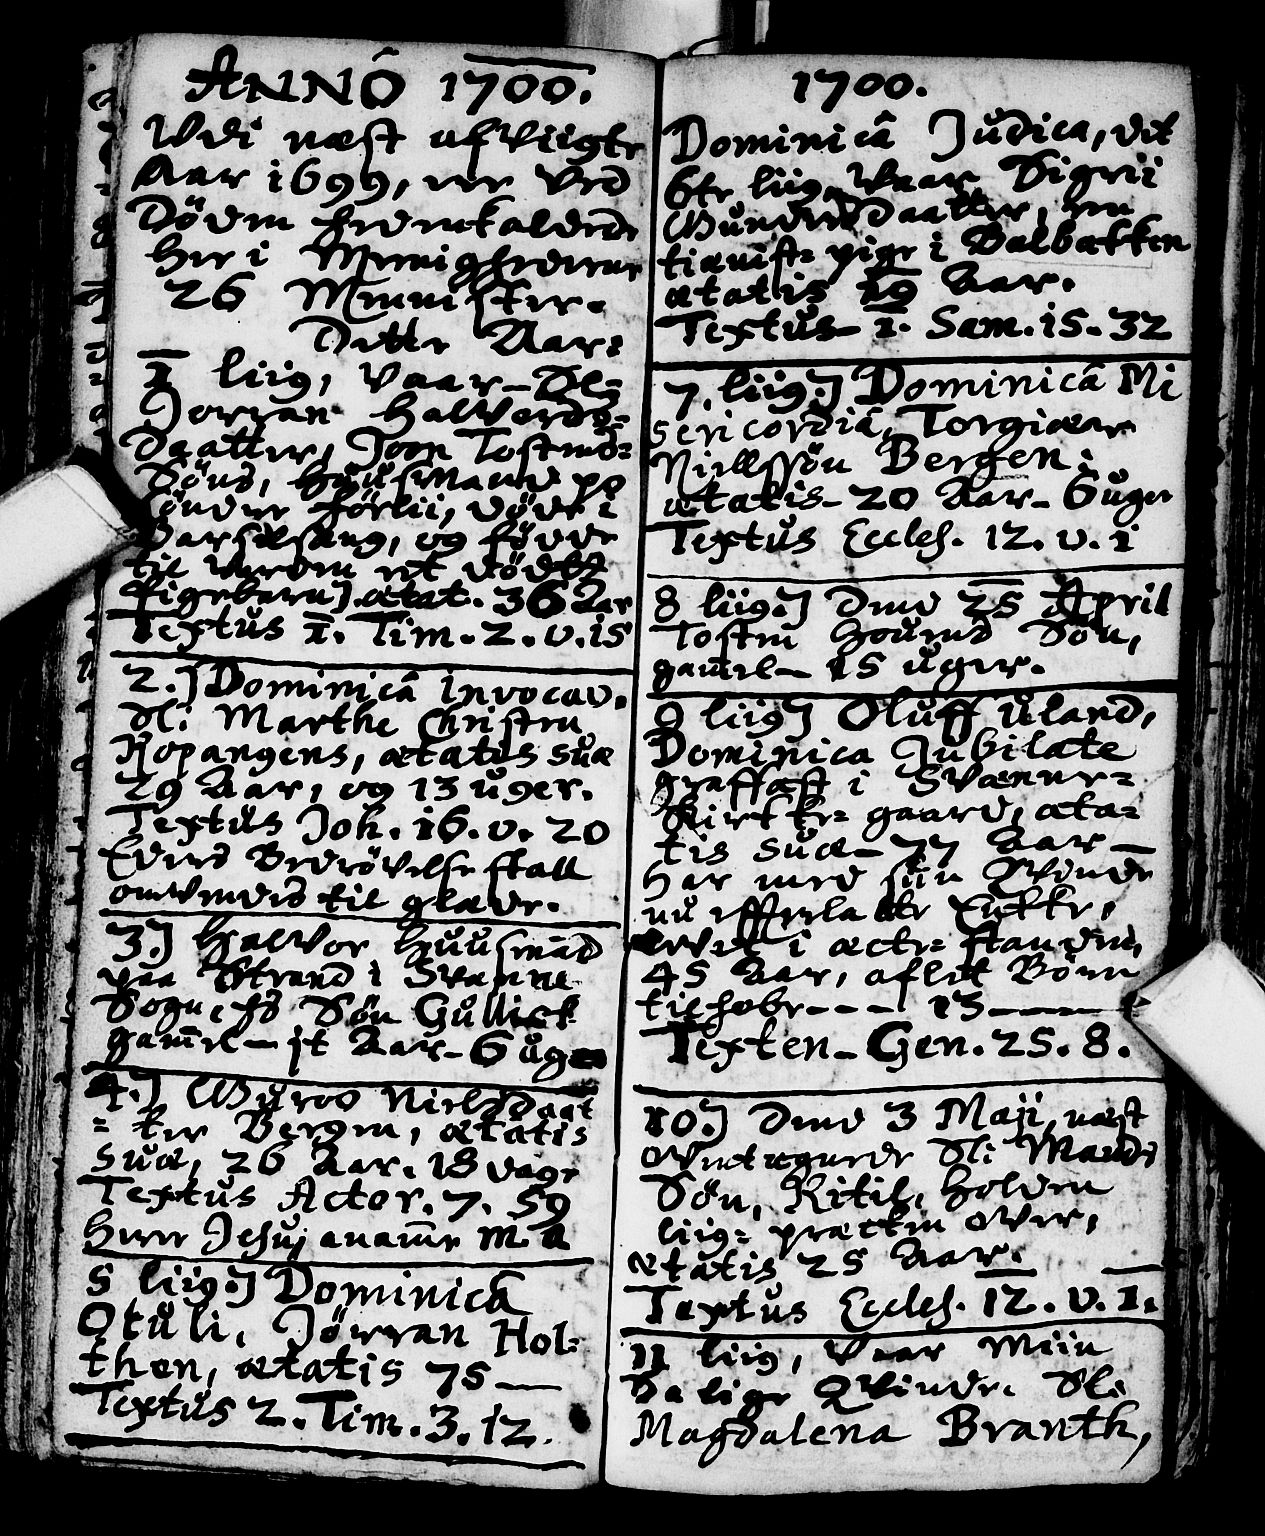 ANNÔ 1700.
Udi næst afviigte
Aar 1699, ere ved
Döden hedenkaldede
her i Meenigheden
26 Mennister.
Dette Aar:
1 liig, Vaar Sl=
Jorran Halvords=
Daatter, Joen Tostens=
Söns, Huusmands po
Söndre Förlii, döde i
Barselsang, og födde
til Verden et dödt
Pigebarn] ætat. 36 Aar
Textus 1. Tim. 2. v. 15
2.] Dominicâ Invocav.
Sl: Marthe Christen
Kopangens, ætatis suæ
29 Aar, og 13 uger.
Textus Joh. 16. v. 20
Eders Bedrövelse skall
omvendis til glæde.
3.] Halvor Huusmâd
paa Strand i Svenne
Sogn, hs Sön Gullick
gam̄el - jt Aar - 6 uger
4.] Guroe Nielsdaat
= ter Bergen, ætatis
suæ, 26 Aar. 18 dage
Textus Actor. 7. 59
Herre Jesu, anam̄e m. a
5 liig.] Dominicâ
Otuli, Jörran Hol=
then, ætatis 75 —
Textus 2. Tim. 3. 12.
1700.
Dominicâ Judica, dit
6te liig, Vaar Sigrii
Gunders Daatter, en
tiænist= pige i Dalbækken
ætatis 19 Aar.
Textus - 1. Sam. 15 - 32
7. liig.] Dominicâ Mi
sericordiâ, Torgiæer
Niellssön Bergen:
ætatis - 20 Aar - 6 uger
Textus Eccles. 12. v. 1
8 liig.] Dend 25 April
Tosten Sön,
gam̄el - 15 uger.
9 liig] Oluff Uland,
Dominica Jubilate
graffæst i Svenne=
Kirkke= gaard, æta=
tis suæ - 77 Aar —
har med siin Qvinde
nu efferladte Enkke,
levet i æcte= standen,
45 Aar, aflet Börn
tilhobe - - - - 13 —
Texten - Gen. 25. 8.
10.] Dend 3 Maji, næst
Sl: Mands
Sön, Kitil, holden
liig= prækken over,
ætatis 25 Aar.
Textus Eccles. 12. v. 1.
11 liig, Vaar Miin
Salige Qvinde. Sl:
Magdalena Branth,